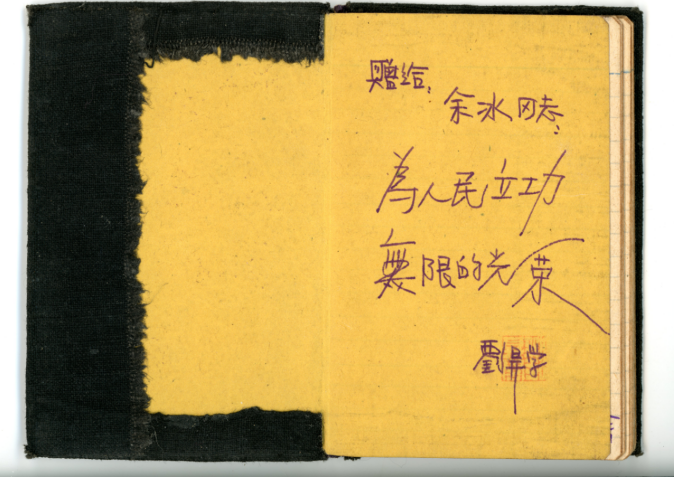 赠给:
余冰同志:
為人民立功
無限的光荣
劉昇学